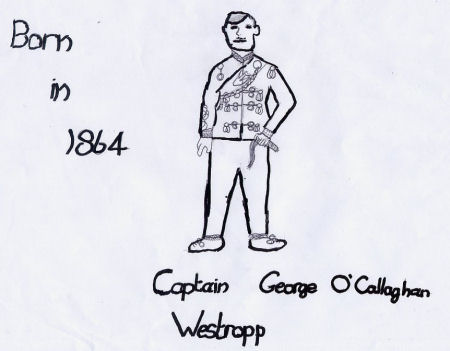 Born
in
1864
Captain George O'Callaghan
Westropp